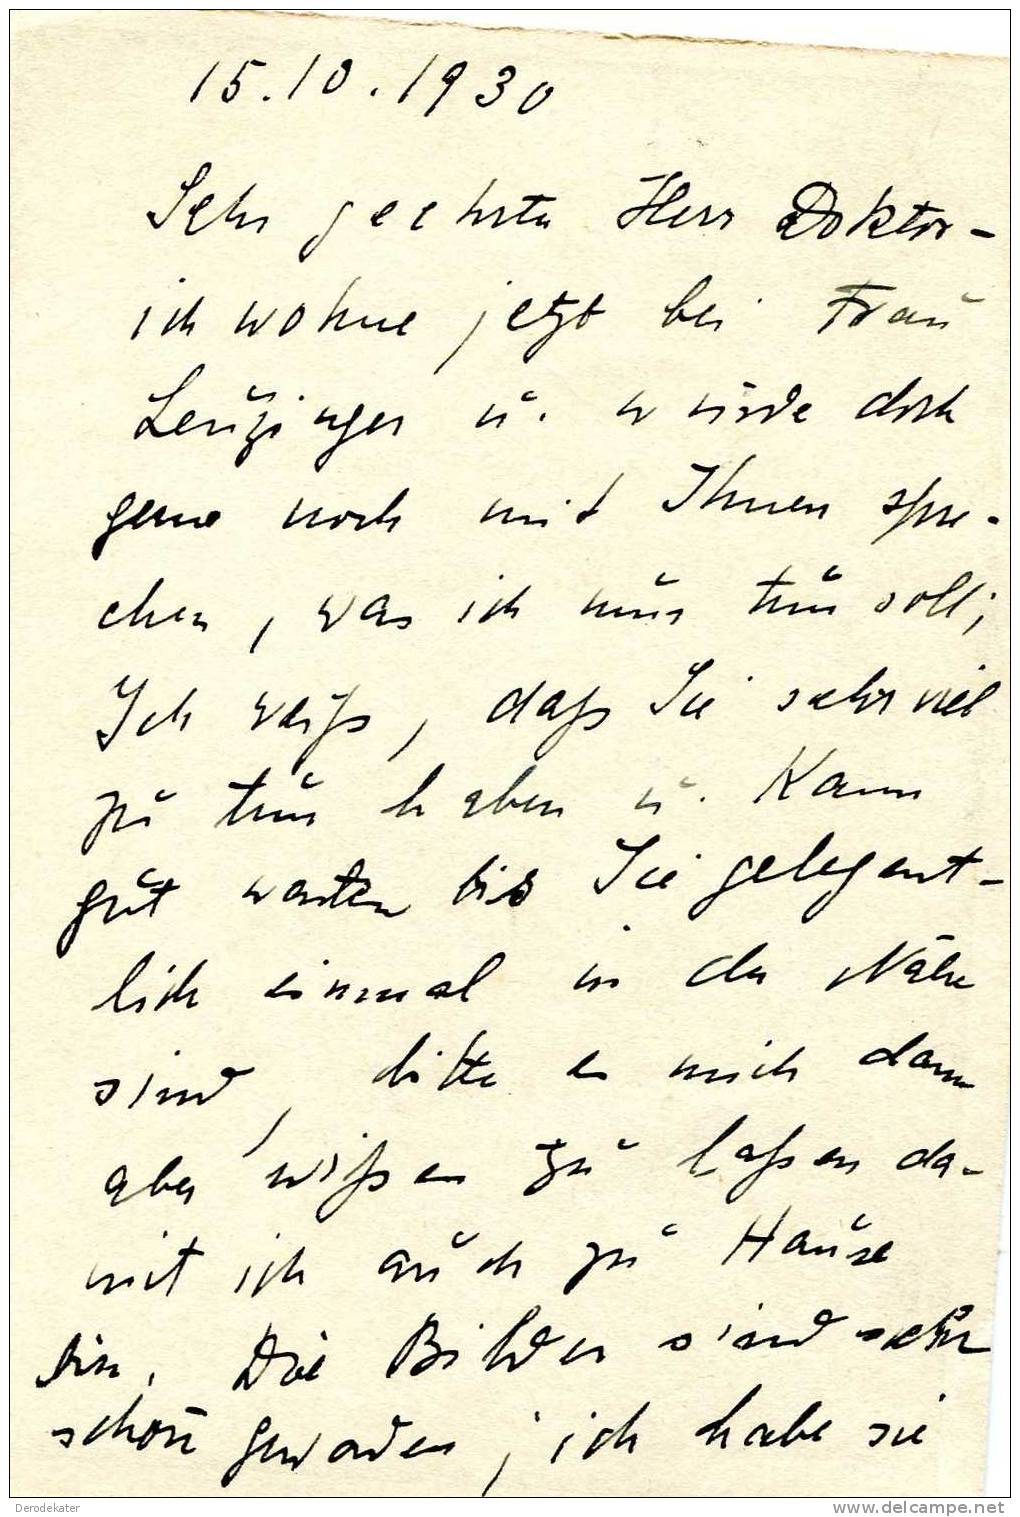 15.10.1930
Sehr geehrter Herr Doktor -
ich wohne jetzt bei Frau
Leuzinger u. würde doch
gerne noch mit Ihnen spre-
chen, was ich nun tun soll;
Ich weiß, daß Sie sehr viel
zu tun haben u. kann
gut warten bis Sie gelegent-
lich einmal in der Nähe
sind, bitte es mich dann
aber wißen zu laßen da-
mit ich auch zu Hause
bin. Die Bilder sind sehr
schön geworden; ich habe sie
Derodekater
www.delcampe.net